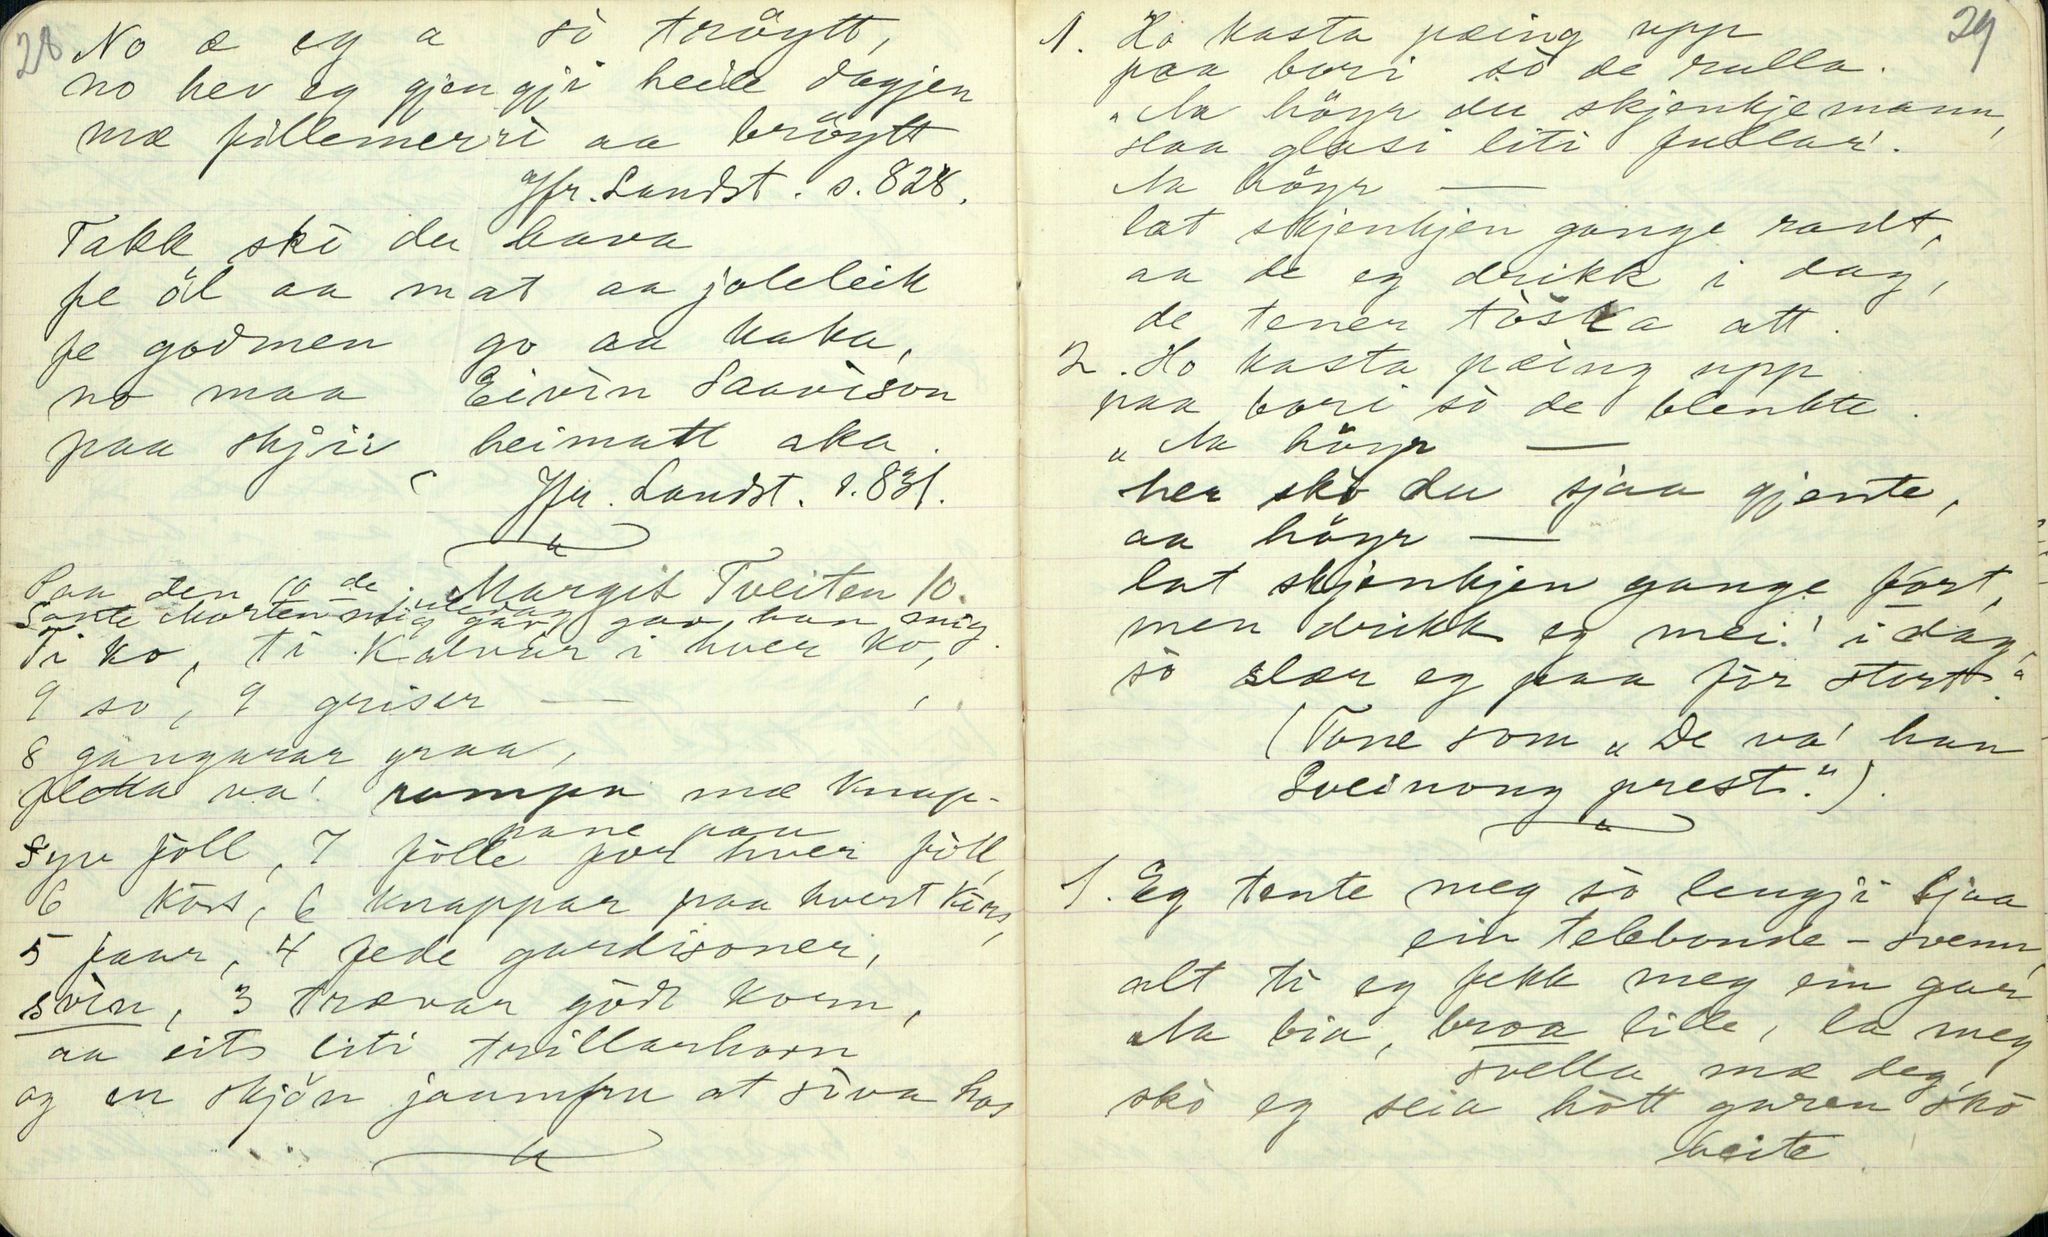 28
No æ eg a så tröytt,
no hev eg gjengji heile dagjen
mæ fillemerri aa bröytt
Jfr. Landst. s. 828.
Takk ski du hava
fe öl aa mat aa joleleik
fe godmen go aa kaka,
no maa Eivin Saavison
paa skjii heimatt aka.
Jfr. Landst. s. 831.
Margit Tveiten 10.
Paa den 10de juledag
Sante Morten mig gav han mig
Ti ko, ti kalvar i hver ko,
9 so, 9 griser —
8 gangarar graa,
fletta va' rompa mæ knap-
pane paa
Syv föll, 7 fölle for hver föll,
6 kors, 6 knappar paa hvert kors,
5 faar, 4 fede gardisoner,
svin, 3 trævar gödt korn,
aa eits liti trillarhorn
og en skjön jaamfru at söva hos
29
1. Ho kasta pæing upp
paa bori sò de rulla.
„Aa höyr du skjenkjemann,
slaa glasi liti fullar'.
Aa höyr —
lat skjenkjen gange radt,
aa de eg drikk i dag,
de tener töska att.
2. Ho kasta pæing upp
paa bori sò de blenkte.
„Aa höyr —
her sko du sjaa gjente,
aa höyr —
lat skjenkjen gange fort,
men drikk eg mei! i dag,
sò slær eg paa før stort."
(Tone som „De va' han
Sveinong prest.").
1. Eg tente meg sò lengji hjaa
ein telebonde-svenn,
alt ti eg fekk meg ein gar'
Aa bia, broa lille, la meg
svella mæ deg,
sko eg seia hòtt garen sko
heite